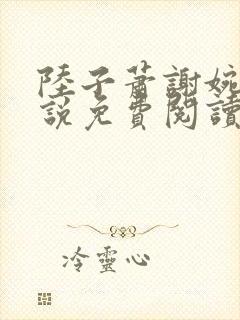 陸子蕭謝婉
說免費閱讀
冷靈心